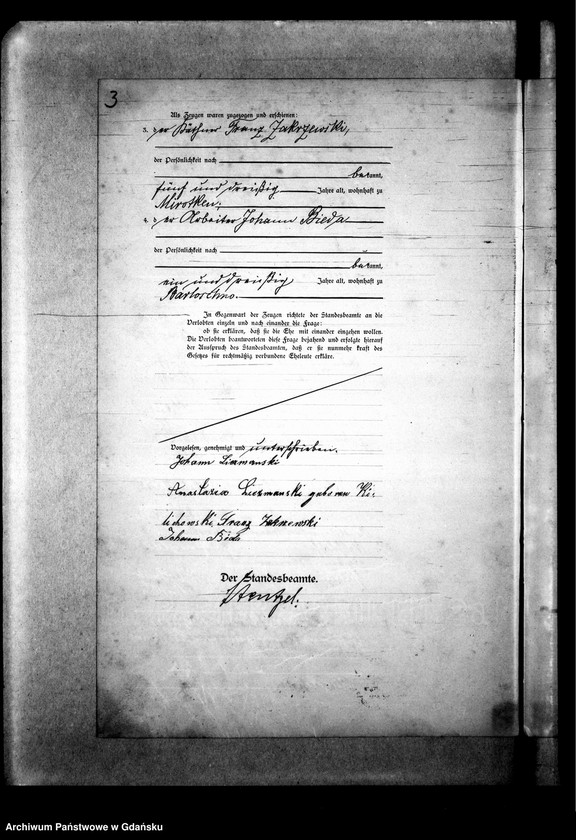 3
Als Zeugen waren zugezogen und erschienen:
3. der Käthner Franz Zakrzewski,
der Persönlichkeit nach
bekannt,
fünf und dreißig Jahre alt, wohnhaft zu
Mirotken;
4. der Arbeiter Johann Bieda
der Persönlichkeit nach
bekannt,
ein und dreißig Jahre alt, wohnhaft zu
Bartoschno.
In Gegenwart der Zeugen richtete der Standesbeamte an die
Verlobten einzeln und nach einander die Frage:
ob sie erklären, daß sie die Ehe mit einander eingehen wollen.
Die Verlobten beantworteten diese Frage bejahend und erfolgte hierauf
der Ausspruch des Standesbeamten, daß er sie nunmehr kraft des
Gesetzes für rechtmäßig verbundene Eheleute erkläre.
Vorgelesen, genehmigt und unterschrieben.
Johann
Anastasia geboren Ki-
lichowski, Franz
Johann
Der Standesbeamte.
Stentzel.
Archiwum Państwowe w Gdańsku